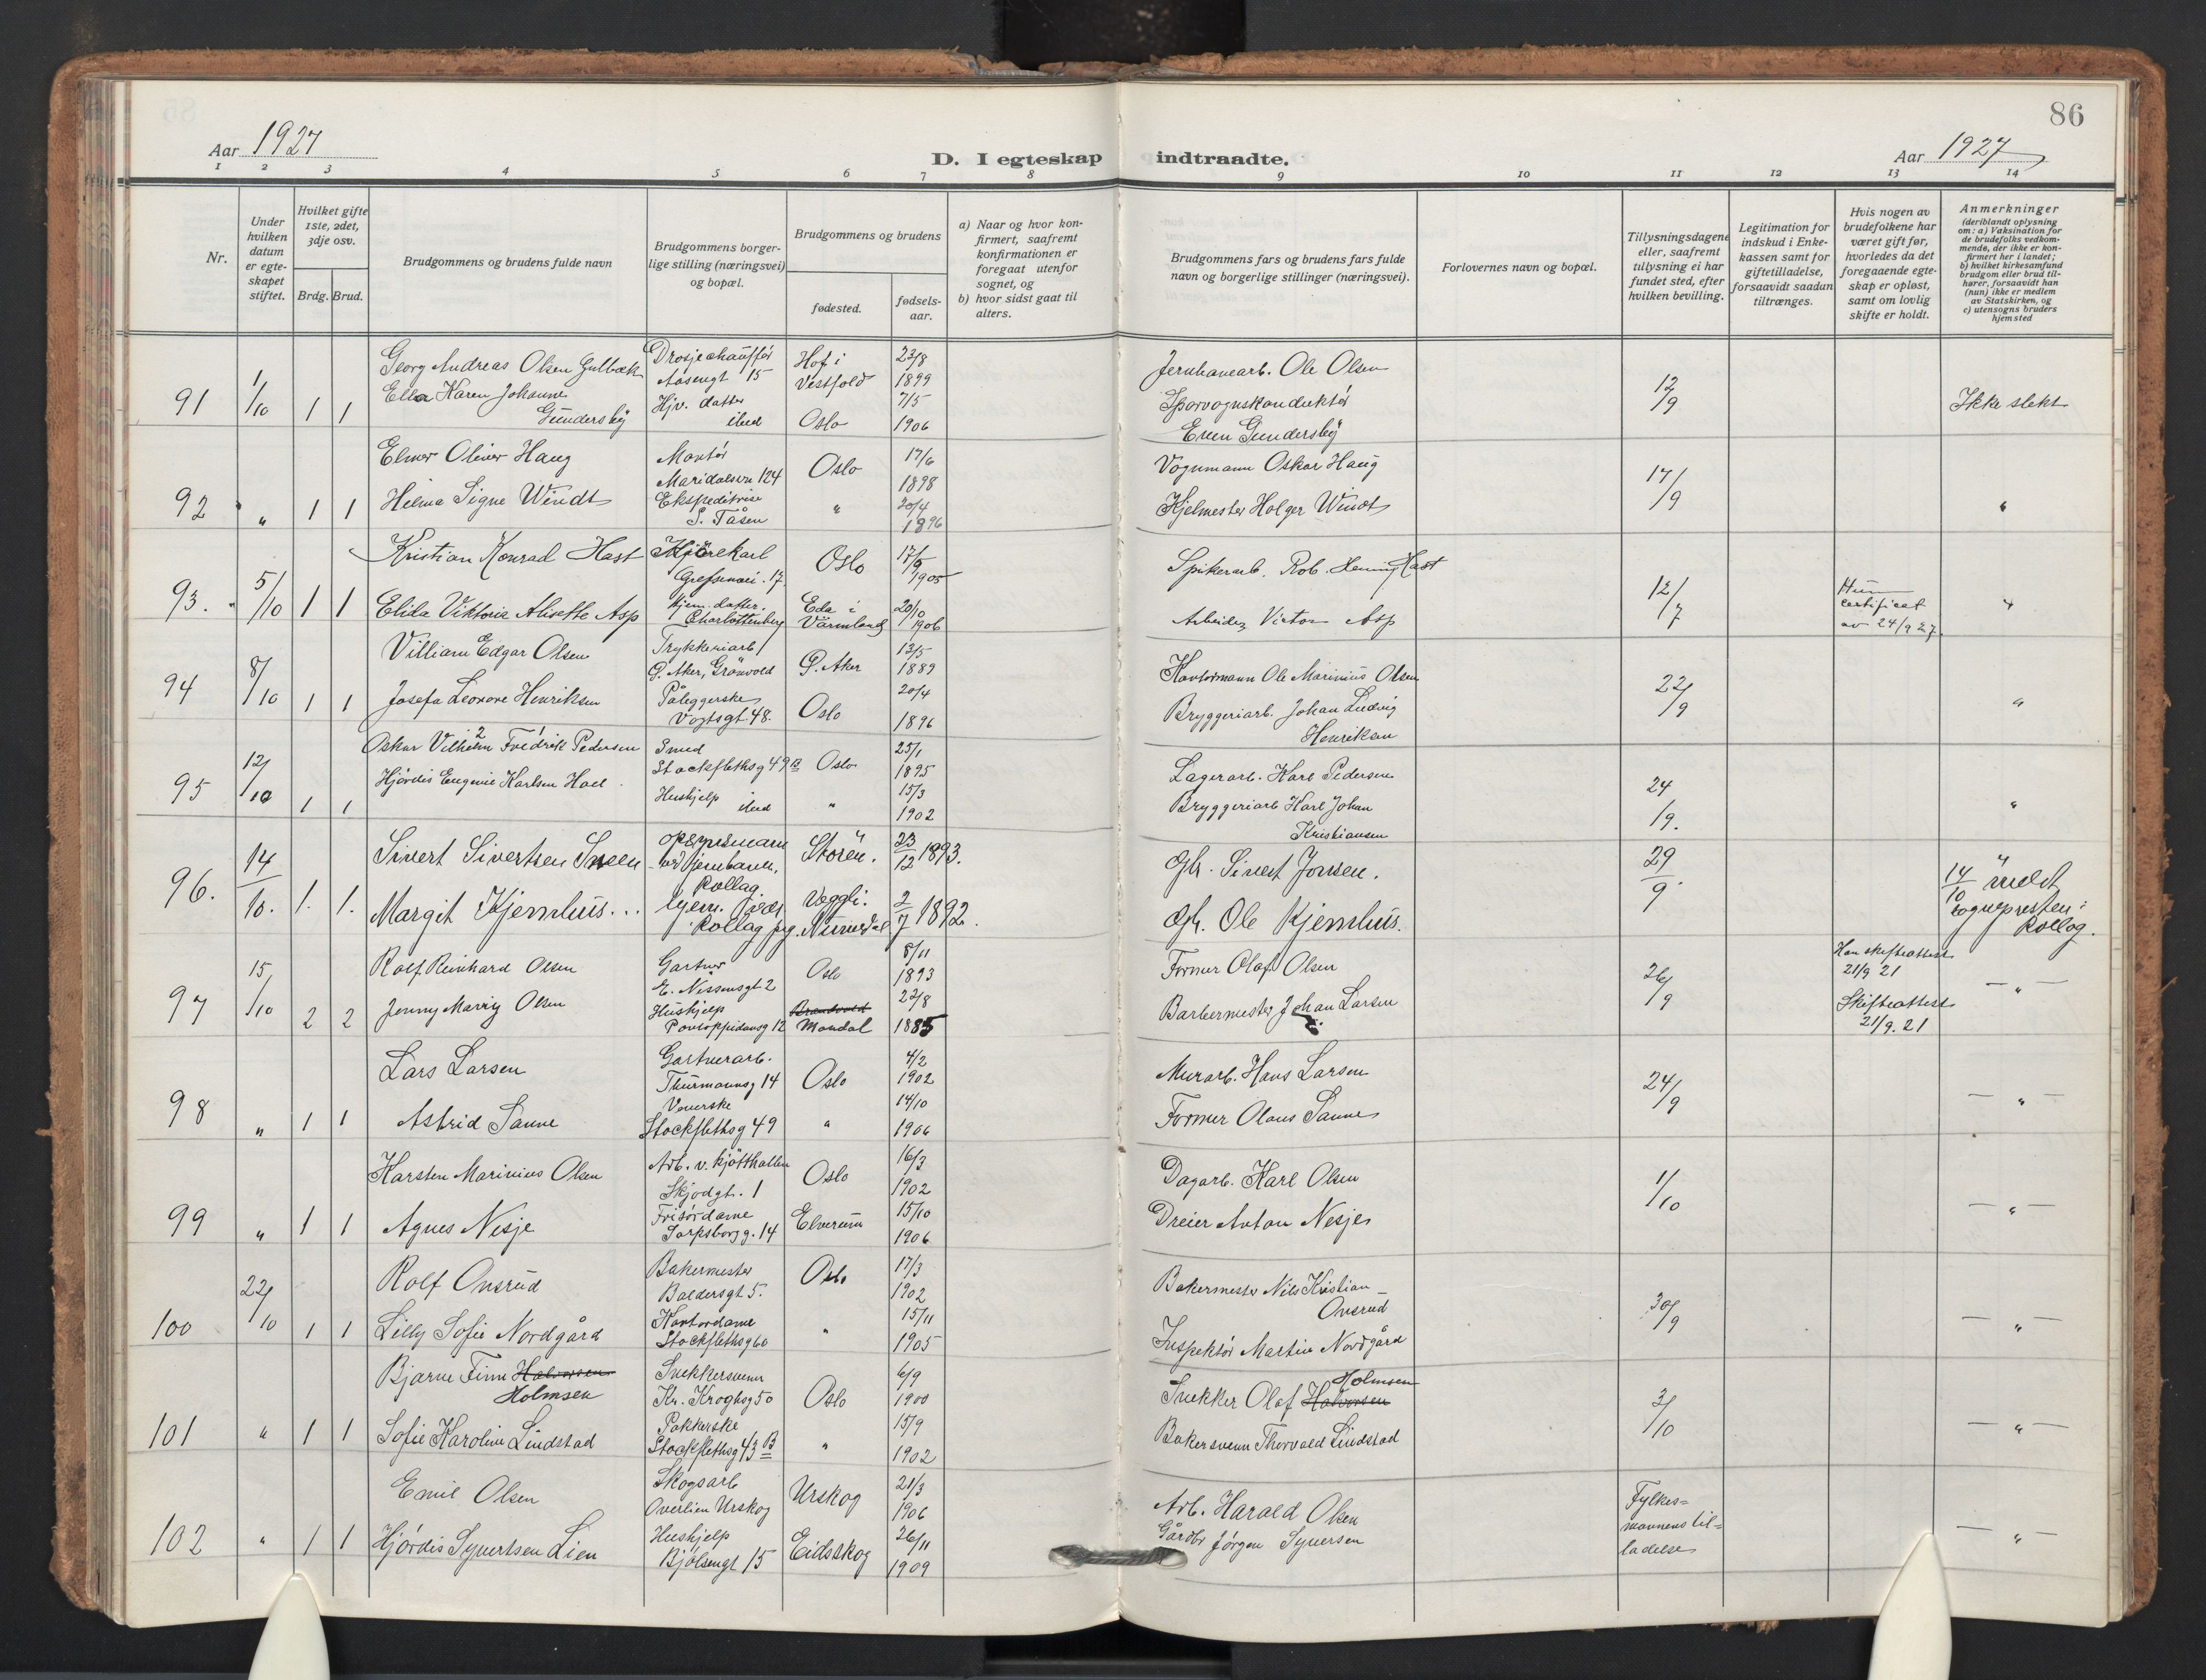 86
Aar 1927
D. I egteskap indtraadte.
Aar 1927
1 2 3 4 5 6 7 8 9 10 11 12 13 14
Nr.
Under hvilken datum er egteskapet stiftet.
Hvilket gifte 1ste, 2det, 3dje osv.
Brdg. Brud.
Brudgommens og brudens fulde navn
Brudgommens borgerlige stilling (næringsvei) og bopæl.
Brudgommens og brudens
fødested.
fødselsaar.
a) Naar og hvor konfirmert, saafremt konfirmationen er foregaat utenfor sognet, og
b) hvor sidst gaat til alters.
Brudgommens fars og brudens fars fulde navn og borgerlige stillinger (næringsvei).
Forlovernes navn og bopæl.
Tillysningsdagene eller, saafremt tillysning ei har fundet sted, efter hvilken bevilling.
Legitimation for indskud i Enkekassen samt for giftetilladelse, forsaavidt saadan tiltrænges.
Hvis nogen av brudefolkene har været gift før, hvorledes da det foregaaende egteskap er opløst, samt om lovlig skifte er holdt.
Anmerkninger
(deriblandt oplysning om: a) Vaksination for de brudefolks vedkommende, der ikke er konfirmert her i landet;
b) hvilket kirkesamfund brudgom eller brud tilhører, forsaavidt han (hun) ikke er medlem av Statskirken, og
c) utensogns bruders hjemsted
91 1/10 1 1
Georg Andreas Olsen Gulbæk
Drosjechauffør Aasengt 15
Hof i Vestfold
23/8 1899
Jernbanearb. Ole Olsen
12/9
Ikke slekt
Ella Karen Johanne Gundersby
Hjv. datter ibid
Oslo
7/5 1906
Sporvognskonduktør Even Gundersby
92 " 1 1
Elmer Oliver Haug
Montør Maridalsvn 124
Oslo
17/6 1898
Vognmann Oskar Haug
17/9
"
Helma Signe Windt
Ekspeditrise S. Tåsen
"
20/4 1896
Hjelmester Holger Windt
93. 5/10 1 1
Kristian Konrad Hast
Kjørekarl Grefsenvei. 17
Oslo
1905
Spikerarb. Rob. Henning Hast
12/7
Hun certificat av 24/9 27
"
Elida Viktoria Alisette Asp
hjem. datter. Charlottenberg
Eda i Värmland
20/10 1906
Arbeider Victor Asp
94 8/10 1 1
Villiam Edgar Olsen
Trykkeriarb Ø. Aker, Grönvold
Ø. Aker
13/5 1889
Kontormann Ole Marinius Olsen
22/9
"
Josefa Leonore Henriksen
Påleggerske Vogtsgt 48.
Oslo
20/4 1896
Bryggeriarb. Johan Ludvig Henriksen
95 12/10 1 1
Oskar Vilhelm Fredrik Pedersen
Smed Stockflethsg 49 B
Oslo
25/1 1895
Lagerarb. Karl Pedersen
24/9.
"
Hjördis Eugenie Karlsen Hoel
Hushjelp ibid
"
15/3 1902
Bryggeriarb Karl Johan Kristiansen
96. 14/10. 1. 1.
Sivert Sivertsen Sneen
opsynsmann ved jernbanen. Rollag.
Stören.
23/12 1893.
Gbr. Sivert Jonsen.
29/9.
"
14/10 meldt sognepresten i Rollag.
Margit Kjemhus...
hjem. Rollag prg.
Veggli. Numedal
2/7 1892.
Gbr. Ole Kjemhus.
97 15/10 2 2
Rolf Reinhard Olsen
Gartner E. Nissensgt 2
Oslo
8/11 1893
Former Olaf Olsen
26/9
Han skifteattest 21/9 21
"
Jenny Marry Olsen
Hushjelp Pontoppidansg 12
Mandal
22/8 1885
Barbermester Johan Larsen
Skifteattest 21/9. 21
98 " 1 1
Lars Larsen
Gartnerarb. Thurmannsg 14
Oslo
4/2 1902
Murarb. Hans Larsen
24/9
"
Astrid Sanne
Veverske Stockflethsg 49
"
14/10 1906
Former Olaus Sanne
99 " 1 1
Karsten Marinius Olsen
Arb. v. kjötthallen Skjodgt. 1
Oslo
16/3 1902
Dagarb. Karl Olsen
1/10
"
Agnes Nesje
Frisørdame Sarpsborgg. 14
Elverum
15/10 1906
Dreier Anton Nesje
100 22/10 1 1
Rolf Onsrud
Bakermester Baldersgt 5.
Oslo
17/3 1902
Bakermester Nils Kristian Onsrud
30/9
"
Lilly Sofie Nordgård
Kontordame Stockflethsg 60
"
15/11 1905
Inspektør Martin Nordgård
101 " 1 1
Bjarne Finn Halvorsen Holmsen
Snekkersvenn Kr. Kroghsg 50
Oslo
6/9 1900
Snekker Olaf Halvorsen Holmsen
3/10
"
Sofie Karoline Lindstad
Pakkerske Stockflethsg 43 B
"
15/9 1902
Bakersvenn Thorvald Lindstad
102 " 1 1
Emil Olsen
Skogsarb Overlien Urskog
Urskog
21/3 1906
Arb. Harald Olsen
Fylkesmannens tilladelse
"
Hjördis Syvertsen Lien
Hushjelp Bjølsengt 15
Eidsskog
26/11 1909
Gårdbr Jörgen Syversen